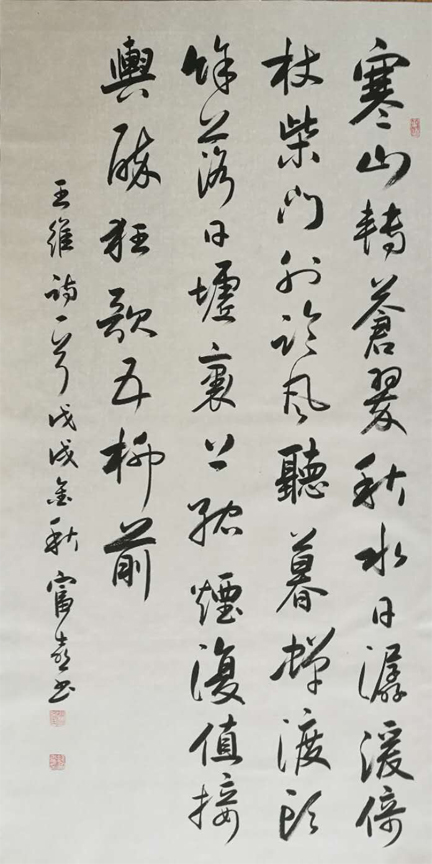 寒山轉蒼翠秋水日潺湲倚
杖柴門外臨風聽暮蟬渡頭
餘落日墟裏上孤煙復值接
輿醉狂歌五柳前
王維詩一首戊戌金秋富書